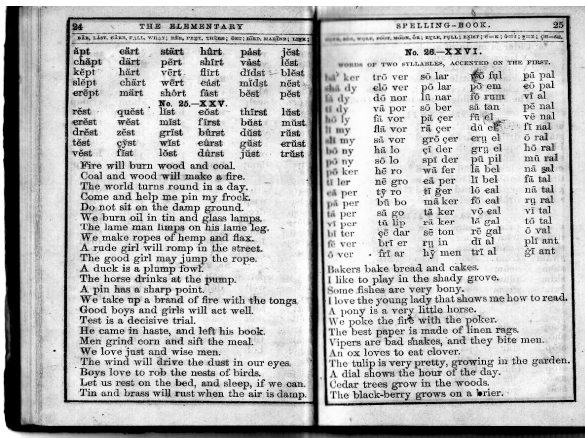 24 THE ELEMENTARY
BÄR, LÅST, CÂRE, FALL, WHAT; HËR, PREY, THÊRE; ĜET; BÏRD, MARÏNE; LINK;
ăpt cärt stärt hûrt pȧst jĕst
chăpt därt pẽrt shĩrt vȧst lĕst
kĕpt härt vẽrt flĩrt dĭdst blĕst
slĕpt chärt wẽrt ēast mĭdst nĕst
crĕpt märt shôrt fȧst bĕst pĕst
No. 25.—XXV.
rĕst quĕst lĭst cŏst thĩrst lŭst
crĕst wĕst mĭst fĩrst bŭst mŭst
drĕst zĕst grĭst bûrst dŭst rŭst
tĕst çy̆st wĭst cûrst gŭst crŭst
vĕst fĭst lŏst dûrst jŭst trŭst
Fire will burn wood and coal.
Coal and wood will make a fire.
The world turns round in a day.
Come and help me pin my frock.
Do not sit on the damp ground.
We burn oil in tin and glass lamps.
The lame man limps on his lame leg.
We make ropes of hemp and flax.
A rude girl will romp in the street.
The good girl may jump the rope.
A duck is a plump fowl.
The horse drinks at the pump.
A pin has a sharp point.
We take up a brand of fire with the tongs.
Good boys and girls will act well.
Test is a decisive trial.
He came in haste, and left his book.
Men grind corn and sift the meal.
We love just and wise men.
The wind will drive the dust in our eyes.
Boys love to rob the nests of birds.
Let us rest on the bed, and sleep, if we can.
Tin and brass will rust when the air is damp.
SPELLING-BOOK. 25
No. 26.—XXVI.
WORDS OF TWO SYLLABLES, ACCENTED ON THE FIRST.
bā´ ker trō ver sō lar wō ful pā pal
shā dy clō ver pō lar pō em cō pal
lā dy dō nor lū nar fō rum vī al
tī dy vā por sō ber sā tan pē nal
hō ly fā vor pā çer fū el vē nal
lī my flā vor rā çer dū el fī nal
slī my sā vor grō çer cru el ō ral
bō ny hā lo çī der gru el hō ral
pō ny sō lo spī der pū pil mū ral
pō ker hē ro wā fer lā bel nā ṣal
tī ler nē gro cā per lī bel fā tal
cā per tȳ ro tī ḡer lō cal nā tal
pā per bū bo mā ker fō cal ru ral
tā per sā go tā ker vō cal vī tal
vī per tū lip rā ker lē gal tō tal
bī ter çē dar sē ton rē gal ō val
fē ver brī er ru in dī al plī ant
ō ver frī ar hȳ men trī al ġī ant
Bakers bake bread and cakes.
I like to play in the shady grove.
Some fishes are very bony.
I love the young lady that shows me how to read.
A pony is a very little horse.
We poke the fire with the poker.
The best paper is made of linen rags.
Vipers are bad snakes, and they bite men.
An ox loves to eat clover.
The tulip is very pretty, growing in the garden.
A dial shows the hour of the day.
Cedar trees grow in the woods.
The black-berry grows on a brier.